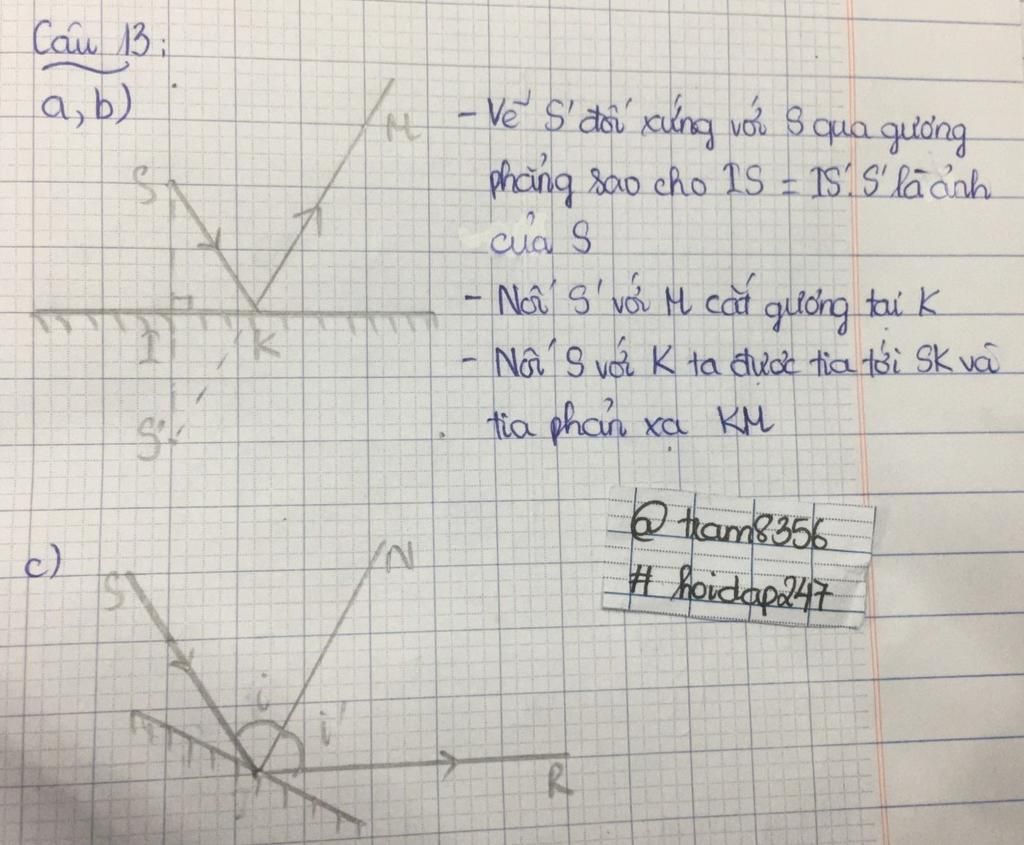 Câu 13:
a, b)
S
M
I
K
S'
- Vẽ S' đối xứng với S qua gương
phẳng sao cho IS = IS'. S' là ảnh
của S
- Nối S' với M cắt gương tại K
- Nối S với K ta được tia tới SK và
tia phản xạ KM
@ tram8356
# hoidap247
c)
S
N
i
i'
R